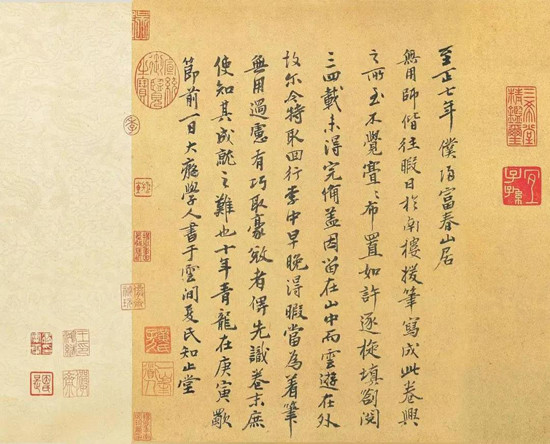 至正七年僕歸富春山居
無用師偕往暇日於南樓援筆寫成此卷興
之所至不覺亹〻布置如許逐旋填劄閱
三四載未得完備盖因留在山中而雲遊在外
故尔今特取回行李中早晚得暇當為着筆
無用過慮有巧取豪敚者俾先識卷末庶
使知其成就之難也十年青龍在庚寅歜
節前一日大癡學人書于雲間夏氏知止堂
三希堂精鑒璽
宜子孫
宣統御覽之寶